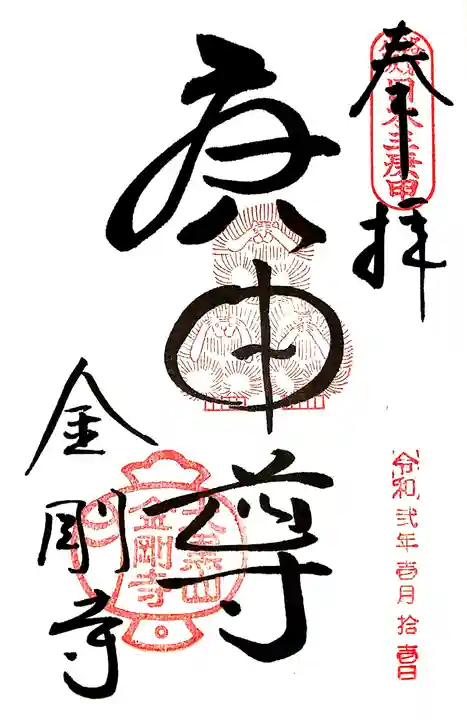 奉拝
日本三庚申
庚申尊
大黒山
金剛寺
金剛寺
令和弐年壱月拾壱日